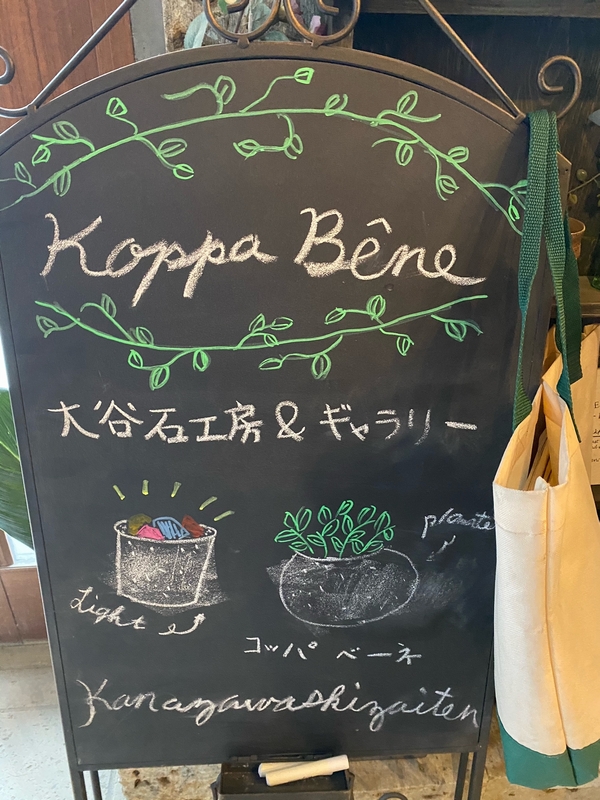 Koppa Bêne
大谷石工房&ギャラリー
Light
コッパ ベーネ
Kanazawashizaiten